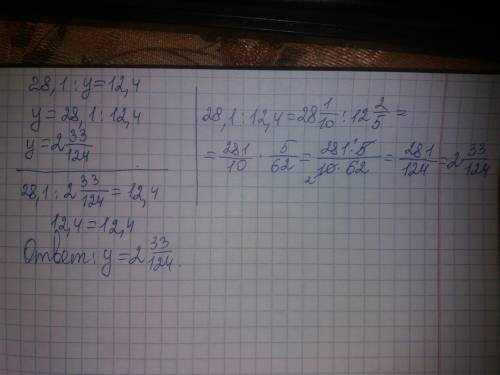 28,1 : y = 12,4
y = 28,1 : 12,4
y = 2 33/124
28,1 : 2 33/124 = 12,4
12,4 = 12,4
Ответ: y = 2 33/124.
28,1 : 12,4 = 28 1/10 : 12 2/5 =
= 281/10 · 5/62 = 281·5/10·62 = 281/124 = 2 33/124